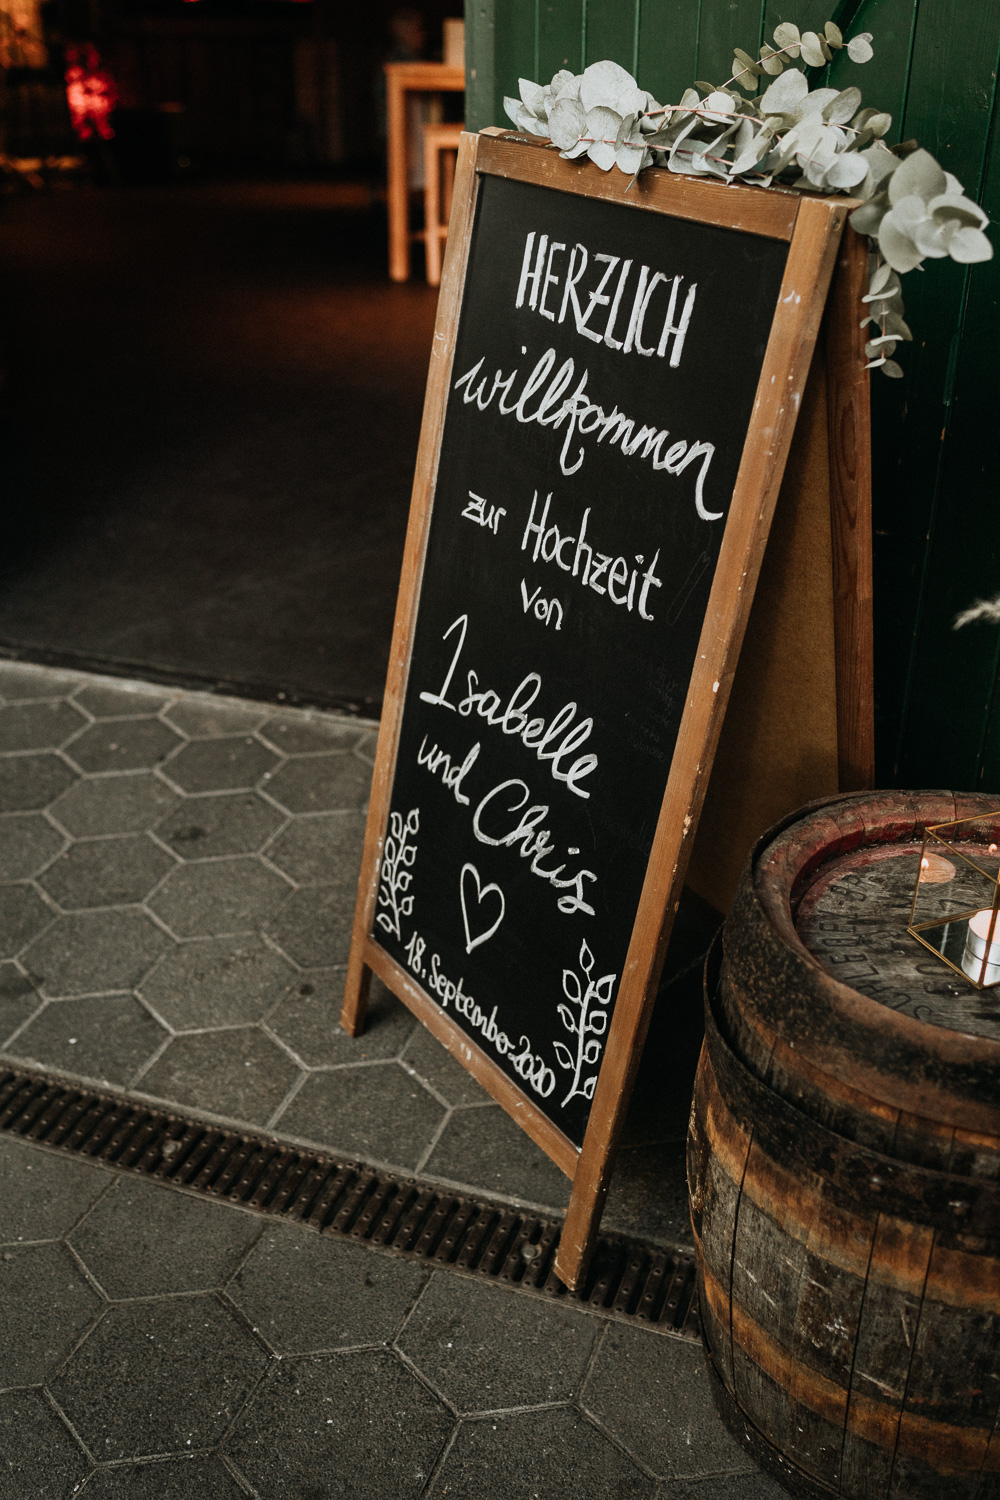 HERZLICH
willkommen
zur Hochzeit
von
Isabelle
und Chris
18. September 2020